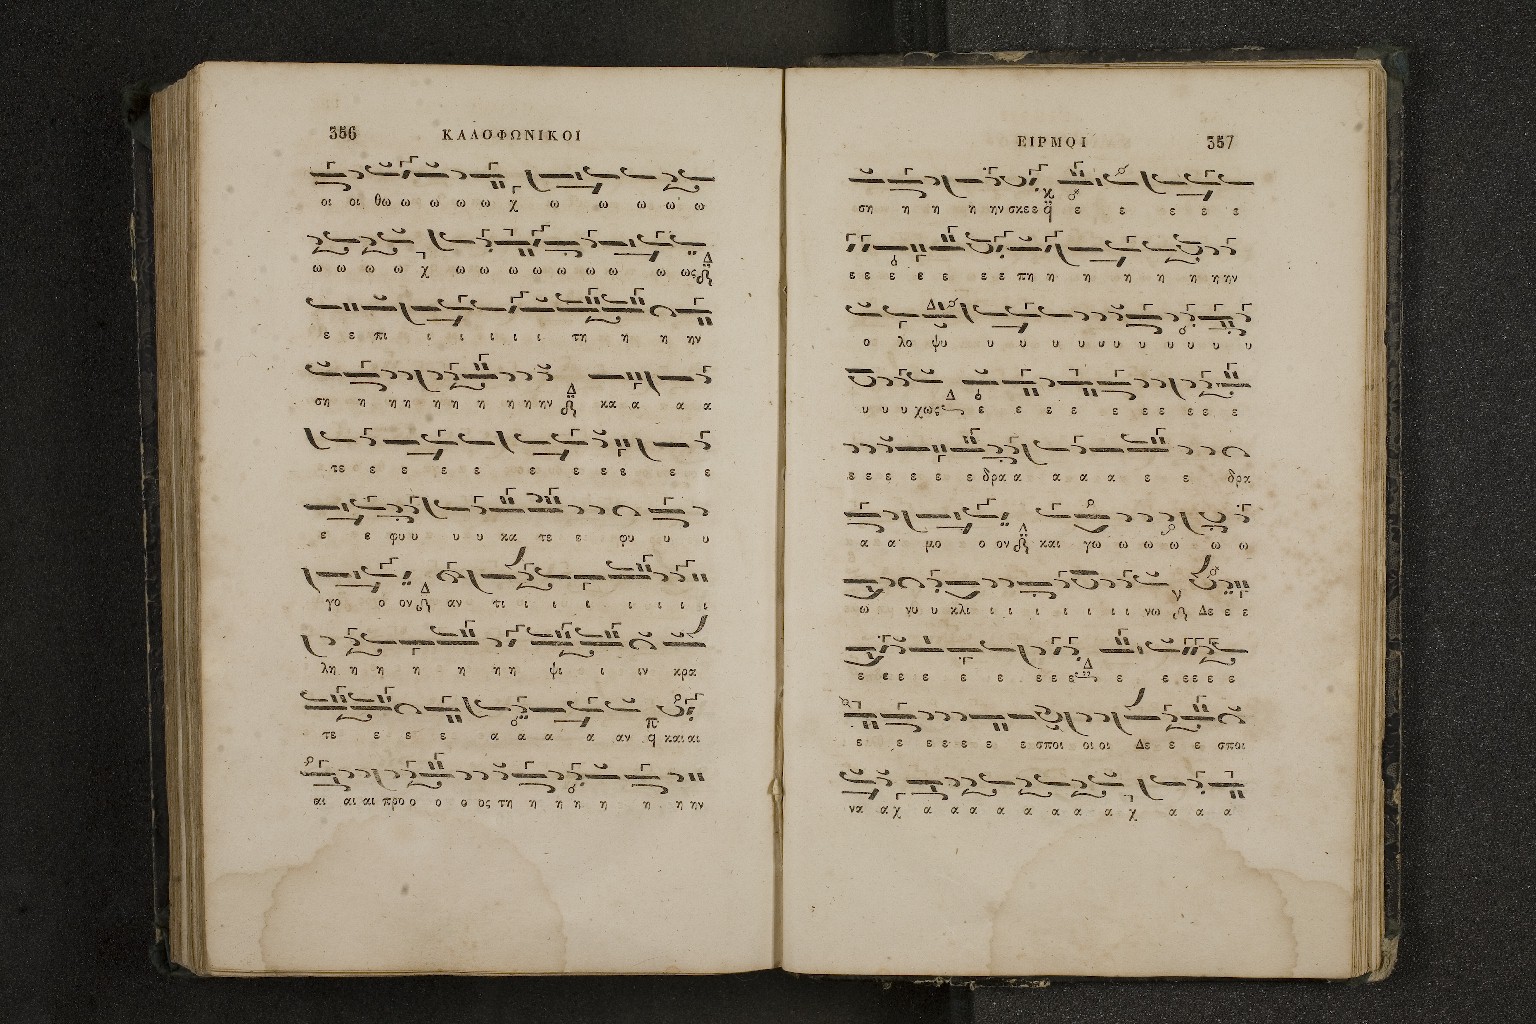 356 ΚΑΛΟΦΩΝΙΚΟΙ
οι οι θω ω ω ω ω χ ω ω ω ω ω
ω ω ω ω χ ω ω ω ω ω ω ω ω ως
ε ε πι ι ι ι ι ι τη η η ην
ση η η η η η η η η ην κα α α α
τε ε ε ε ε ε ε ε ε ε ε
ε ε φυ υ υ υ κα τε ε φυ υ υ
γο ο ον αν τι ι ι ι ι ι ι ι
λη η η η η η η ψι ι ιν κρα
τε ε ε ε α α α α αν και αι
αι αι αι προ ο ο ο ος τη η η η η η η ην
ΕΙΡΜΟΙ 357
ση η η η ην σκε ε ε ε ε ε ε
ε ε ε ε ε ε ε πη η η η η η η ην
ο λο ψυ υ υ υ υ υ υ υ υ υ υ υ
υ υ υ χως ε ε ε ε ε ε ε ε ε ε
ε ε ε ε ε ε ε δρα α α α α ε ε δρα
α α μο ο ον και γω ω ω ω ω ω
ω νυ υ κλι ι ι ι ι ι ι νω Δε ε ε
ε ε ε ε ε ε ε ε ε ε ε ε ε ε ε
ε ε ε ε ε ε ε σποι οι οι Δε ε ε σποι
να α χ α α α α α α α α χ α α α